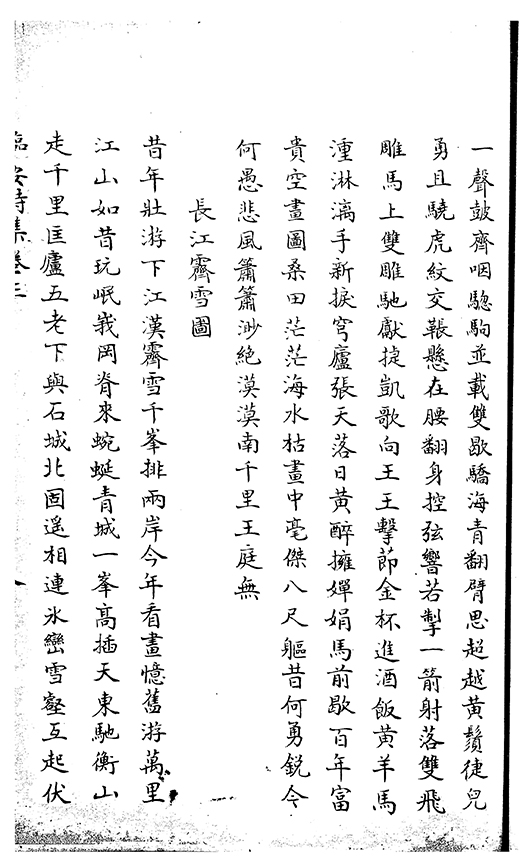 一聲皷齊咽騘駒並載雙歇驕海青翻臂思超越黄鬚徤兒
勇且驍虎紋交韔懸在腰翻身控弦響若掣一箭射落雙飛
雕馬上雙雕馳獻捷凱歌向王王擊莭金杯進酒飯黄羊馬
湩淋漓手新捩穹廬張天落日黄醉擁嬋娟馬前歇百年富
貴空畫圖桑田茫茫海水枯畫中毫傑八尺軀昔何勇鋭今
何愚悲風簫簫渺絶漠漠南千里王庭無
長江霽雪圖
昔年壯游下江漢霽雪千峯排兩岸今年看畫憶舊游萬里
江山如昔玩岷峩岡脊來蜿蜒青城一峯髙插天東馳衡山
走千里匡廬五老下與石城北固遥相連氷巒雪壑互起伏
臨安詩集卷三
八